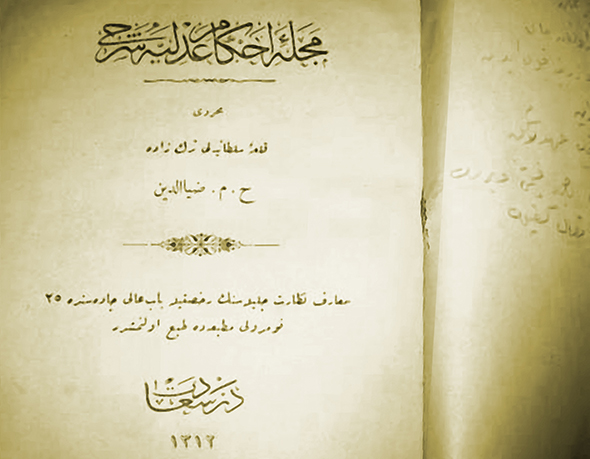 مجلهٔ احكام عدليه شرحى
محررى
قلعهٔ سلطانيه لى ترك زاده
ح . م . ضياالدين
معارف نظارت جليله سنك رخصتيله باب عالى جاده سنده ٢٥
نومرولى مطبعه ده طبع اولنمشدر
درسعادت
١٣١٢